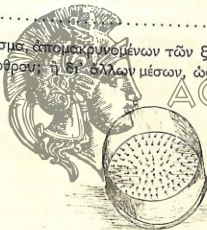 σμα, ἀπομακρυνομένων τῶν ξ
θρου; ἢ δι' ἄλλων μέσων, ὡς
ΑΘ